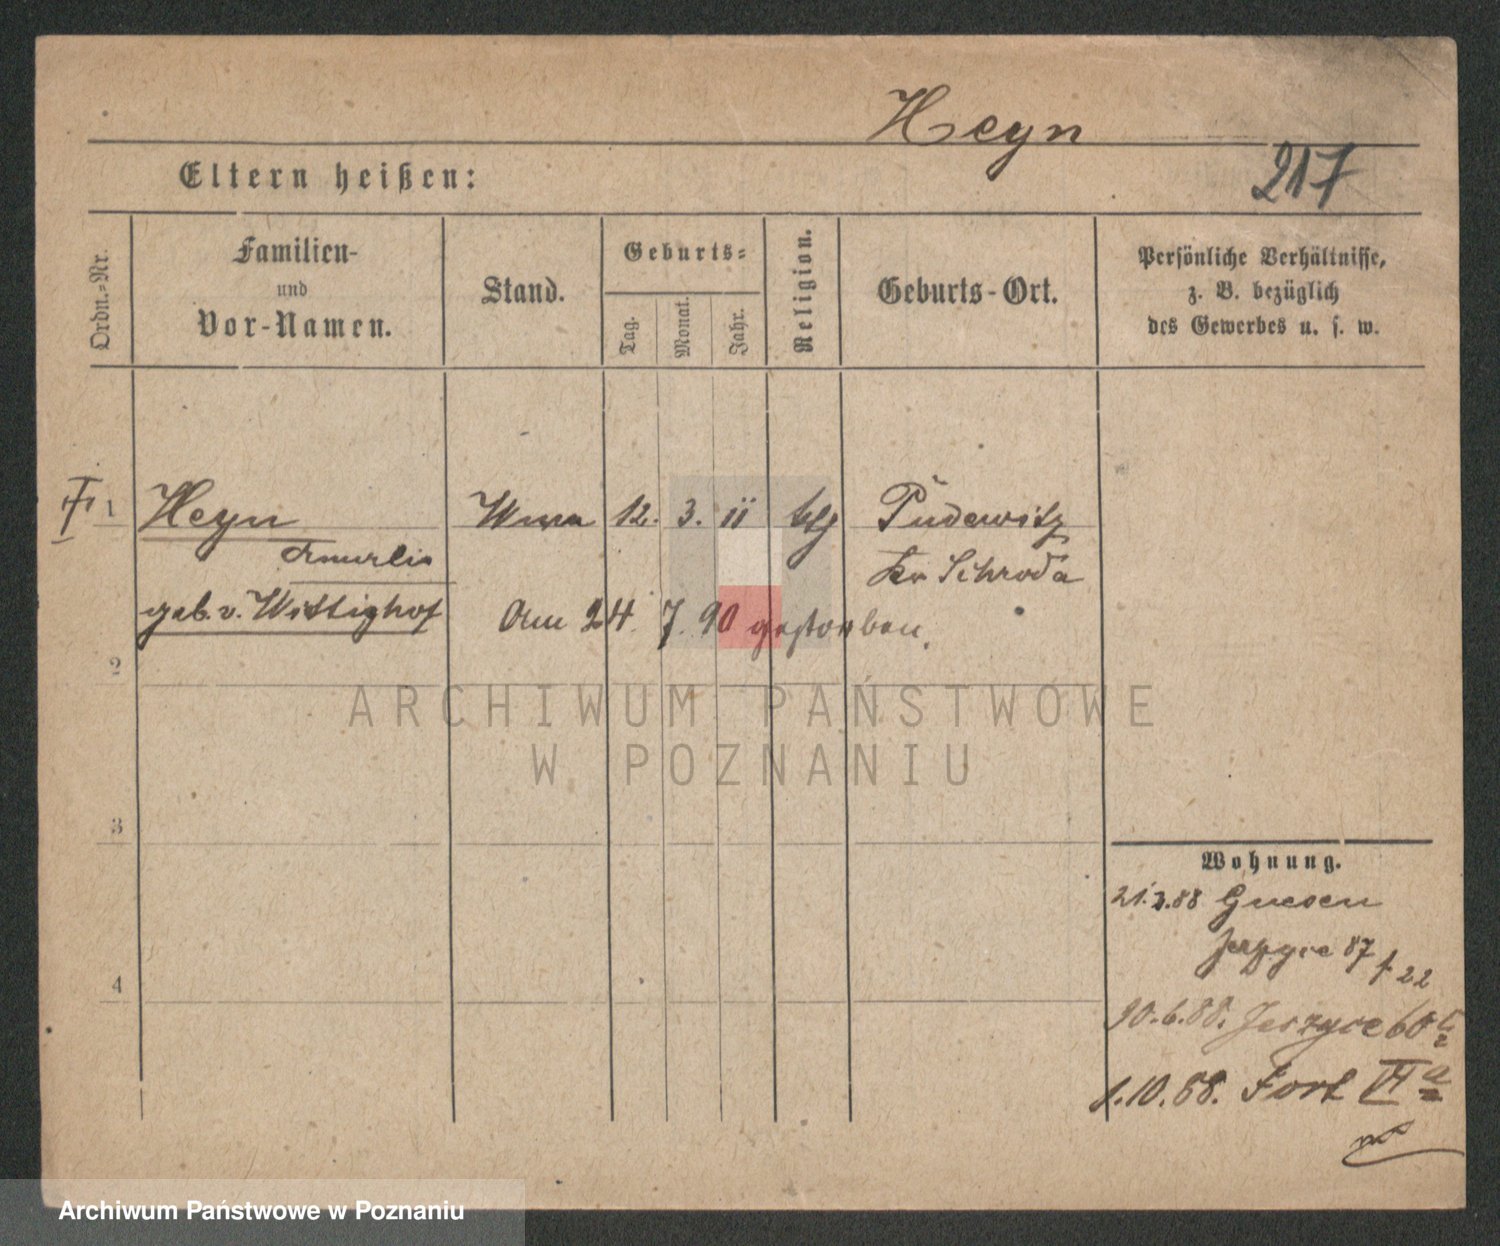 Heyn
217
Eltern heißen:
Ordn.-Nr.
Familien-
und
Vor-Namen.
Stand.
Geburts-
Tag.
Monat.
Jahr.
Religion.
Geburts-Ort.
Persönliche Verhältnisse,
z. B. bezüglich
des Gewerbes u. s. w.
1 Heyn 12. 3. 11 Pudewitz
Kr Schroda
geb. v. Wittighof Am 24. 7. 90 gestorben.
2
ARCHIWUM PAŃSTWOWE
W POZNANIU
3
Wohnung.
21.3.88 Gnesen
Jerzyce 87
22
4
30.6.88. Jerzyce 60
1.10.88. Fort VI a
Archiwum Państwowe w Poznaniu